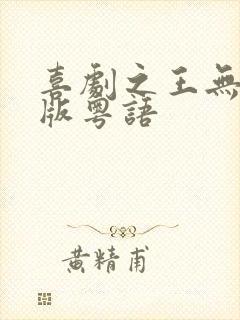 喜劇之王無
版粵語
黃精甫